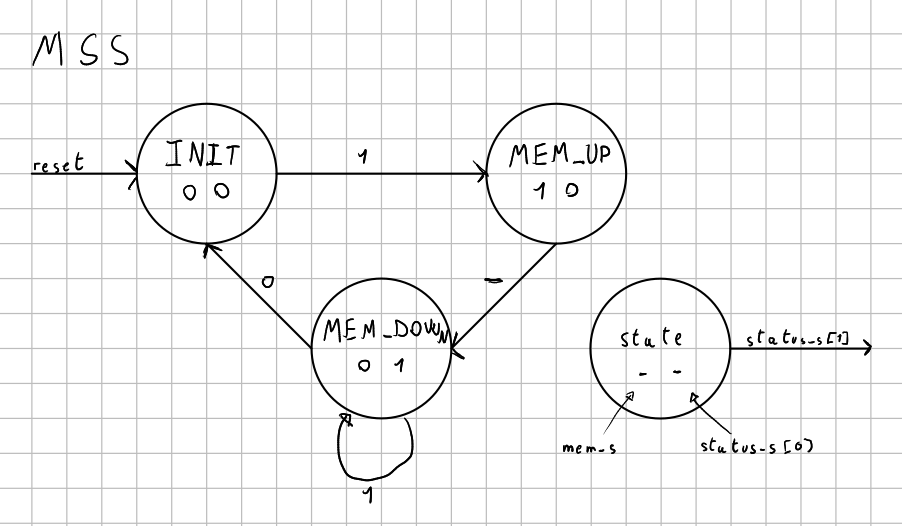 MSS
reset
INIT
0 0
1
MEM_UP
1 0
0
-
MEM_DOWN
0 1
1
state
- -
status_s[1]
mem_s
status_s[0]